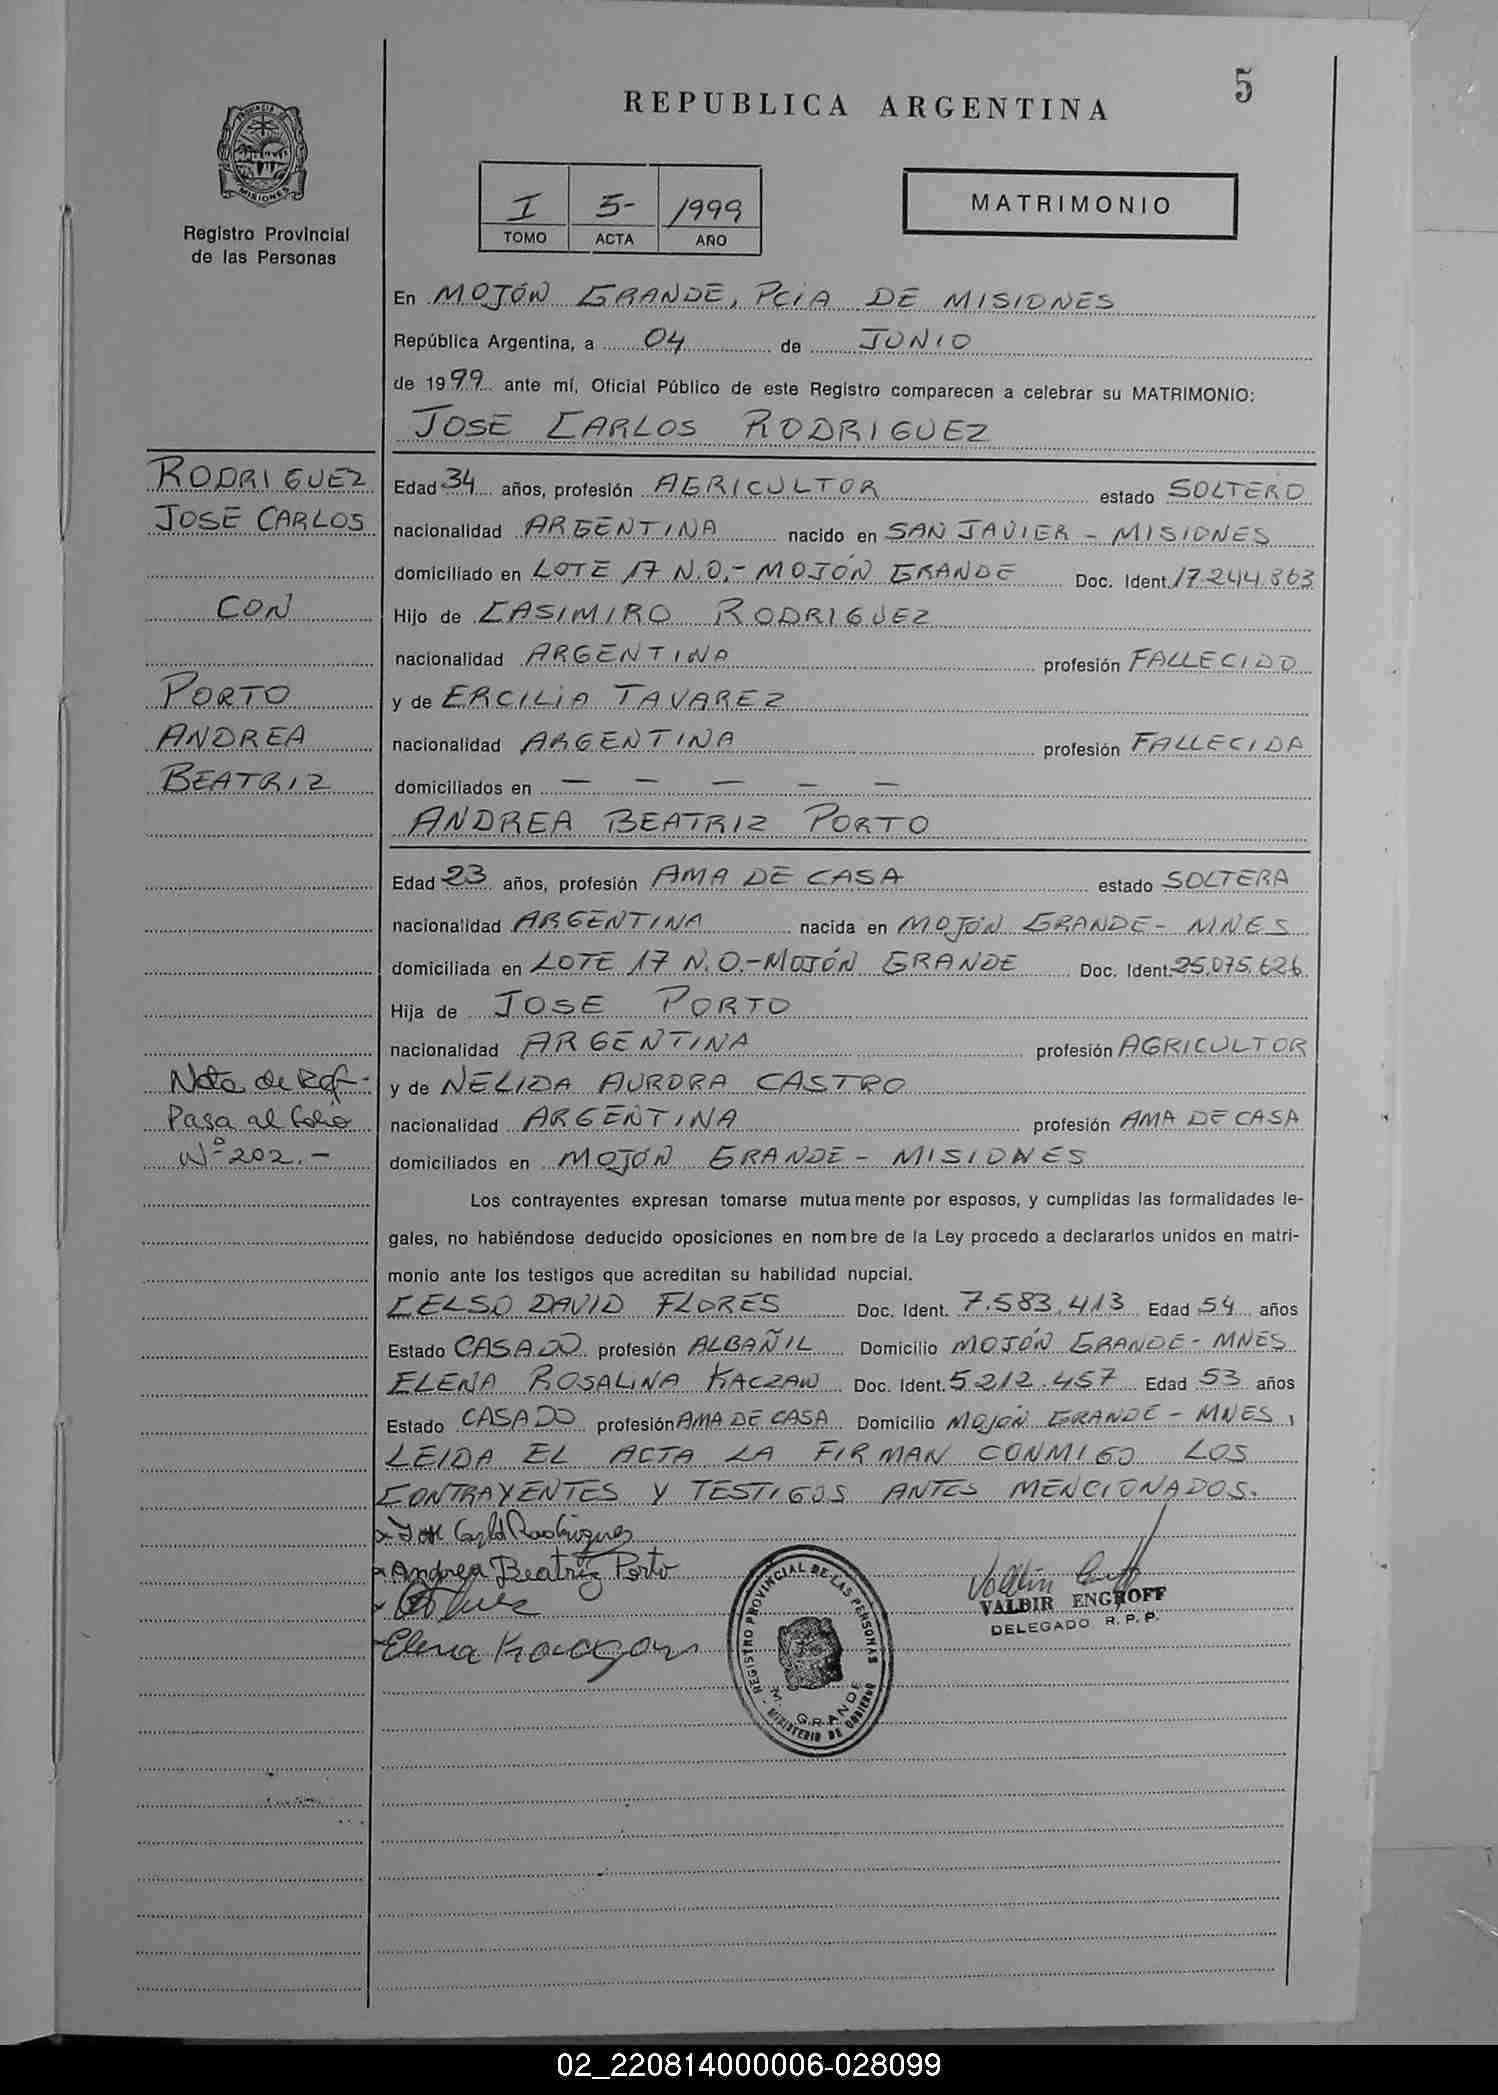 5
REPUBLICA ARGENTINA
PROVINCIA DE
MISIONES
Registro Provincial
de las Personas
I 5- 1999
TOMO ACTA AÑO
MATRIMONIO
En MOJÓN GRANDE, PCIA DE MISIONES
República Argentina, a 04 de JUNIO
de 1999 ante mí, Oficial Público de este Registro comparecen a celebrar su MATRIMONIO:
JOSE CARLOS RODRIGUEZ
RODRIGUEZ
JOSE CARLOS
CON
PORTO
ANDREA
BEATRIZ
Edad 34 años, profesión AGRICULTOR estado SOLTERO
nacionalidad ARGENTINA nacido en SAN JAVIER - MISIONES
domiciliado en LOTE 17 N.O.- MOJÓN GRANDE Doc. Ident. 17.244.363
Hijo de CASIMIRO RODRIGUEZ
nacionalidad ARGENTINA profesión FALLECIDO
y de ERCILIA TAVAREZ
nacionalidad ARGENTINA profesión FALLECIDA
domiciliados en — — — — —
ANDREA BEATRIZ PORTO
Edad 23 años, profesión AMA DE CASA estado SOLTERA
nacionalidad ARGENTINA nacida en MOJÓN GRANDE- MNES
domiciliada en LOTE 17 N.O.-MOJÓN GRANDE Doc. Ident. 25.075.626
Hija de JOSE PORTO
nacionalidad ARGENTINA profesión AGRICULTOR
y de NELIDA AURORA CASTRO
nacionalidad ARGENTINA profesión AMA DE CASA
domiciliados en MOJÓN GRANDE - MISIONES
Nota de Ref-:
Pasa al folio
Nº 202.-
Los contrayentes expresan tomarse mutuamente por esposos, y cumplidas las formalidades le-
gales, no habiéndose deducido oposiciones en nombre de la Ley procedo a declararlos unidos en matri-
monio ante los testigos que acreditan su habilidad nupcial.
CELSO DAVID FLORES Doc. Ident. 7.583.413 Edad 54 años
Estado CASADO profesión ALBAÑIL Domicilio MOJÓN GRANDE- MNES
ELENA ROSALINA KACZAN Doc. Ident. 5.212.457 Edad 53 años
Estado CASADO profesión AMA DE CASA Domicilio MOJÓN GRANDE - MNES,
LEIDA EL ACTA LA FIRMAN CONMIGO LOS
CONTRAYENTES Y TESTIGOS ANTES MENCIONADOS.
Rodriguez
Andrea Beatriz Porto
Elena
VALBIR ENGROFF
DELEGADO R. P. P.
REGISTRO PROVINCIAL DE LAS PERSONAS
M. GRANDE
MINISTERIO DE GOBIERNO
02_220814000006-028099